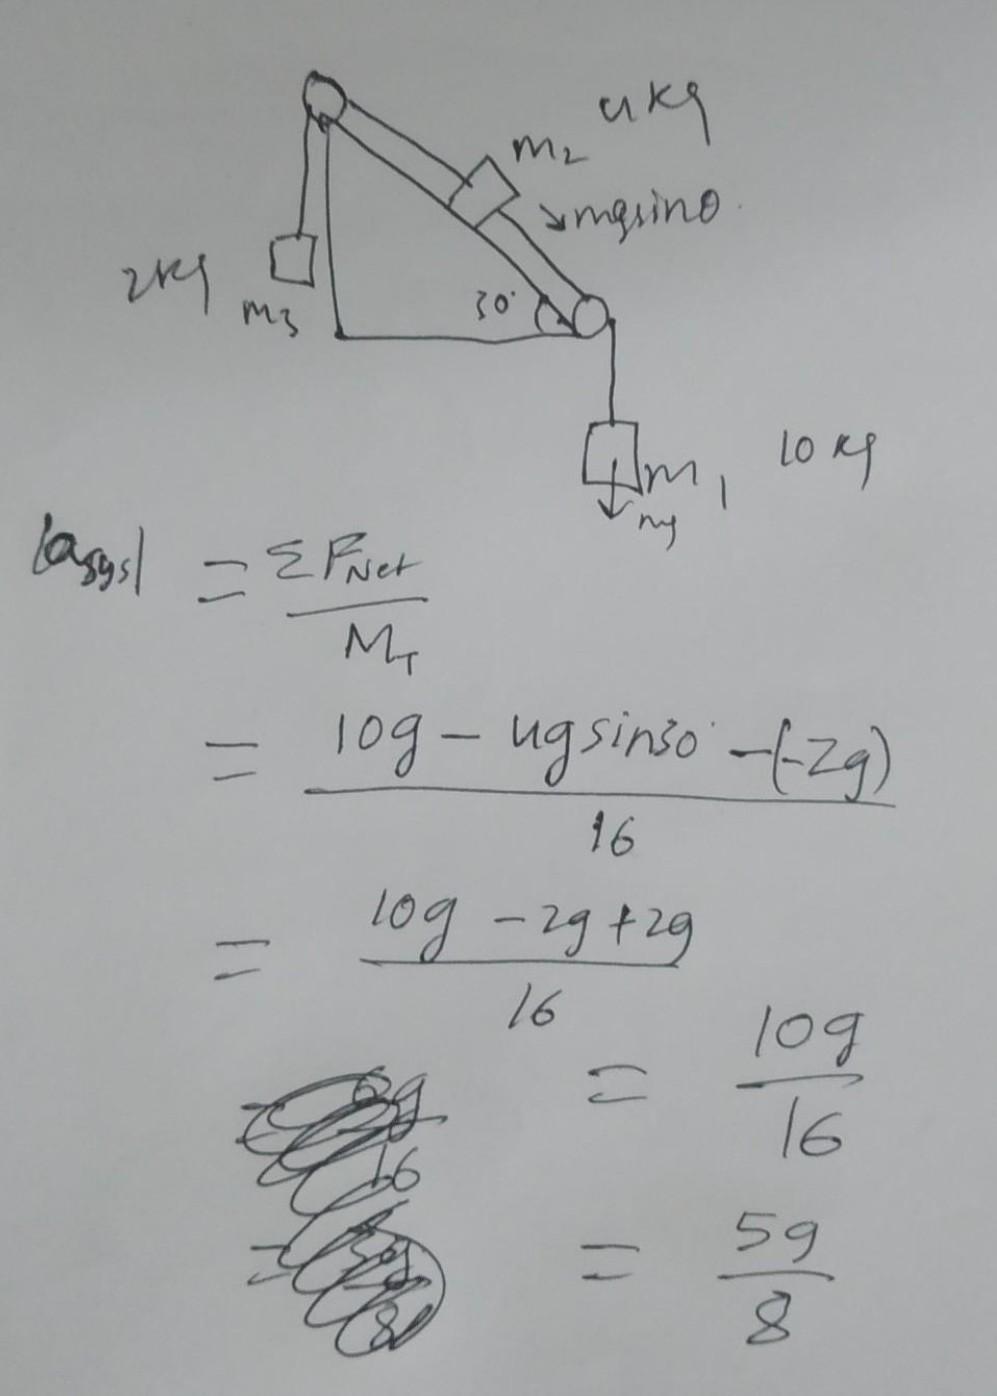 4kg
m₂
mgsinθ
2kg
m₃
30°
m₁ 10 kg
mg
|a_sys| = ΣF_Net / M_T
= 10g - 4gsin30° -(-2g) / 16
= 10g - 2g + 2g / 16
= 10g / 16
= 5g / 8